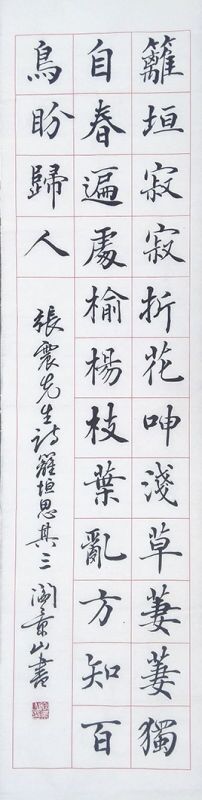 籬垣寂寂折花呻淺草萋萋獨
自春遍處榆楊枝葉亂方知百
鳥盼歸人
張震先生詩籬垣思其三 景山書